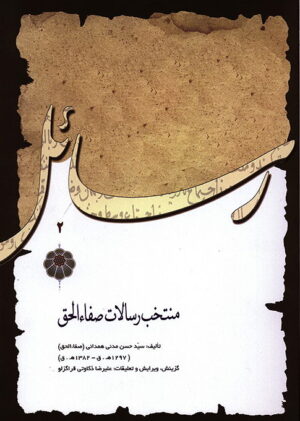 رسائل
۲
منتخب رسالات صفاءالحق
تألیف: سیّد حسن مدنی همدانی (صفاءالحق)
(۱۲۹۷ه‍.ق - ۱۳۸۲ه‍.ق)
گزینش، ویرایش و تعلیقات: علیرضا ذکاوتی قراگزلو